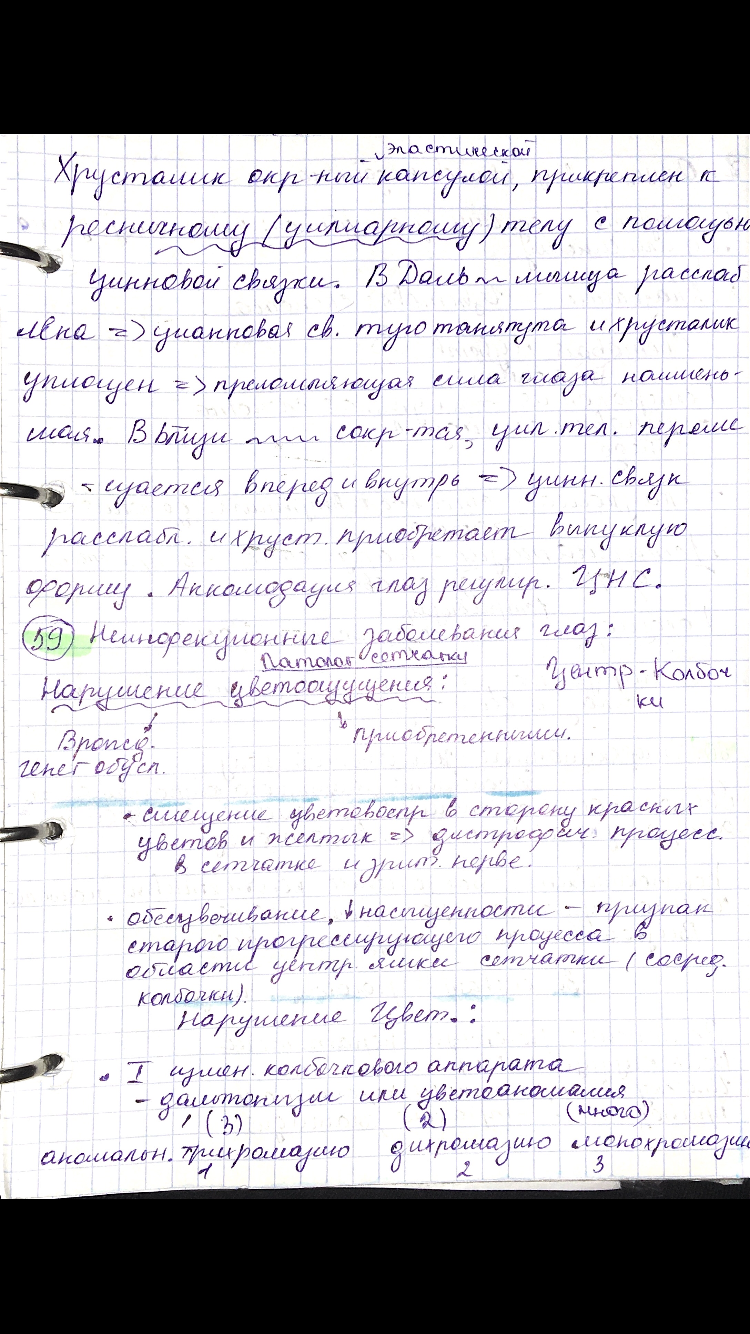 эластической
Хрусталик окр-ный капсулой, прикреплен к
ресничному (цилиарному) телу с помощью
цинновой связки. В Даль ~ мышца расслаб
лена => цинновая св. туго натянута и хрусталик
уплощен => преломляющая сила глаза наимень-
шая. Вблизи ~~~ сокр-тая, цил. тел. переме
- щается вперед и внутрь => цинн. связк
расслабл. и хруст. приобретает выпуклую
форму. Аккомодация глаз регулир. ЦНС.
59 Неинфекционные заболевания глаз:
Патолог сетчатки
Нарушение цветоощущения: Центр - Колбоч
ки
Врожд. приобретенными.
генет обусл.
• смещение цветовоспр в сторону красных
цветов и желтых => дистрофич. процесс.
в сетчатке и зрит. нерве.
• обесцвечивание, ↓ насыщенности – признак
старого прогрессирующего процесса в
области центр ямки сетчатки (сосред.
колбочки).
Нарушение Цвет.:
• I измен. колбочкового аппарата
- дальтонизм или цветоаномалия
(3) (2) (много)
аномальн. трихромазию дихромазию монохромазию
1 2 3